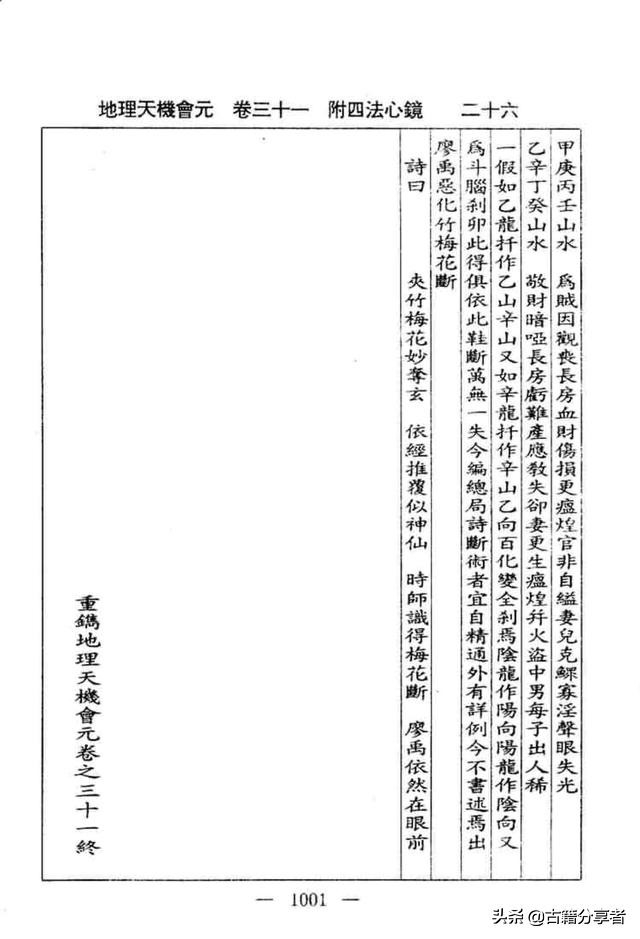 地理天機會元　卷三十一　附四法心鏡　二十六
甲庚丙壬山水　為賊因觀喪長房血財傷損更瘟煌官非自縊妻兒克鰥寡淫聲眼失光
乙辛丁癸山水　敬財暗啞長房虧難產應教失卻妻更生瘟煌并火盜中男每子出人稀
一假如乙龍扦作乙山辛山又如辛龍扦作辛山乙向百化變全剎焉陰龍作陽向陽龍作陰向又
為斗腦剎卯此得俱依此鞋斷萬無一失今編總局詩斷術者宜自精通外有詳例今不書述焉出
廖禹惡化竹梅花斷
詩曰　夾竹梅花妙奪玄　依經推覆似神仙　時師識得梅花斷　廖禹依然在眼前
重鐫地理天機會元卷之三十一終
— 1001 —
头条 @古籍分享者